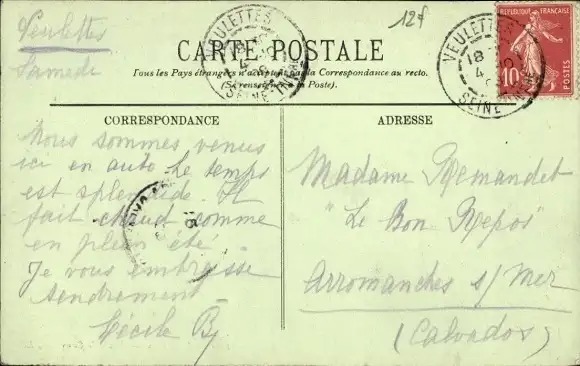 Veulettes
Samedi
12f
VEULETTES
18
4
SEINE INFRE
CARTE POSTALE
Tous les Pays étrangers n'acceptent pas la Correspondance au recto.
(Se renseigner à la Poste).
VEULETTES
18
4
SEINE INFRE
REPUBLIQUE FRANÇAISE
10
POSTES
CORRESPONDANCE
Nous sommes venus
ici en auto. Le temps
est splendide. Il
fait chaud comme
en plein été.
Je vous embrasse
tendrement
Cécile B
ADRESSE
Madame Remandet
"Le Bon Repos"
Arromanches s/ Mer
(Calvados)